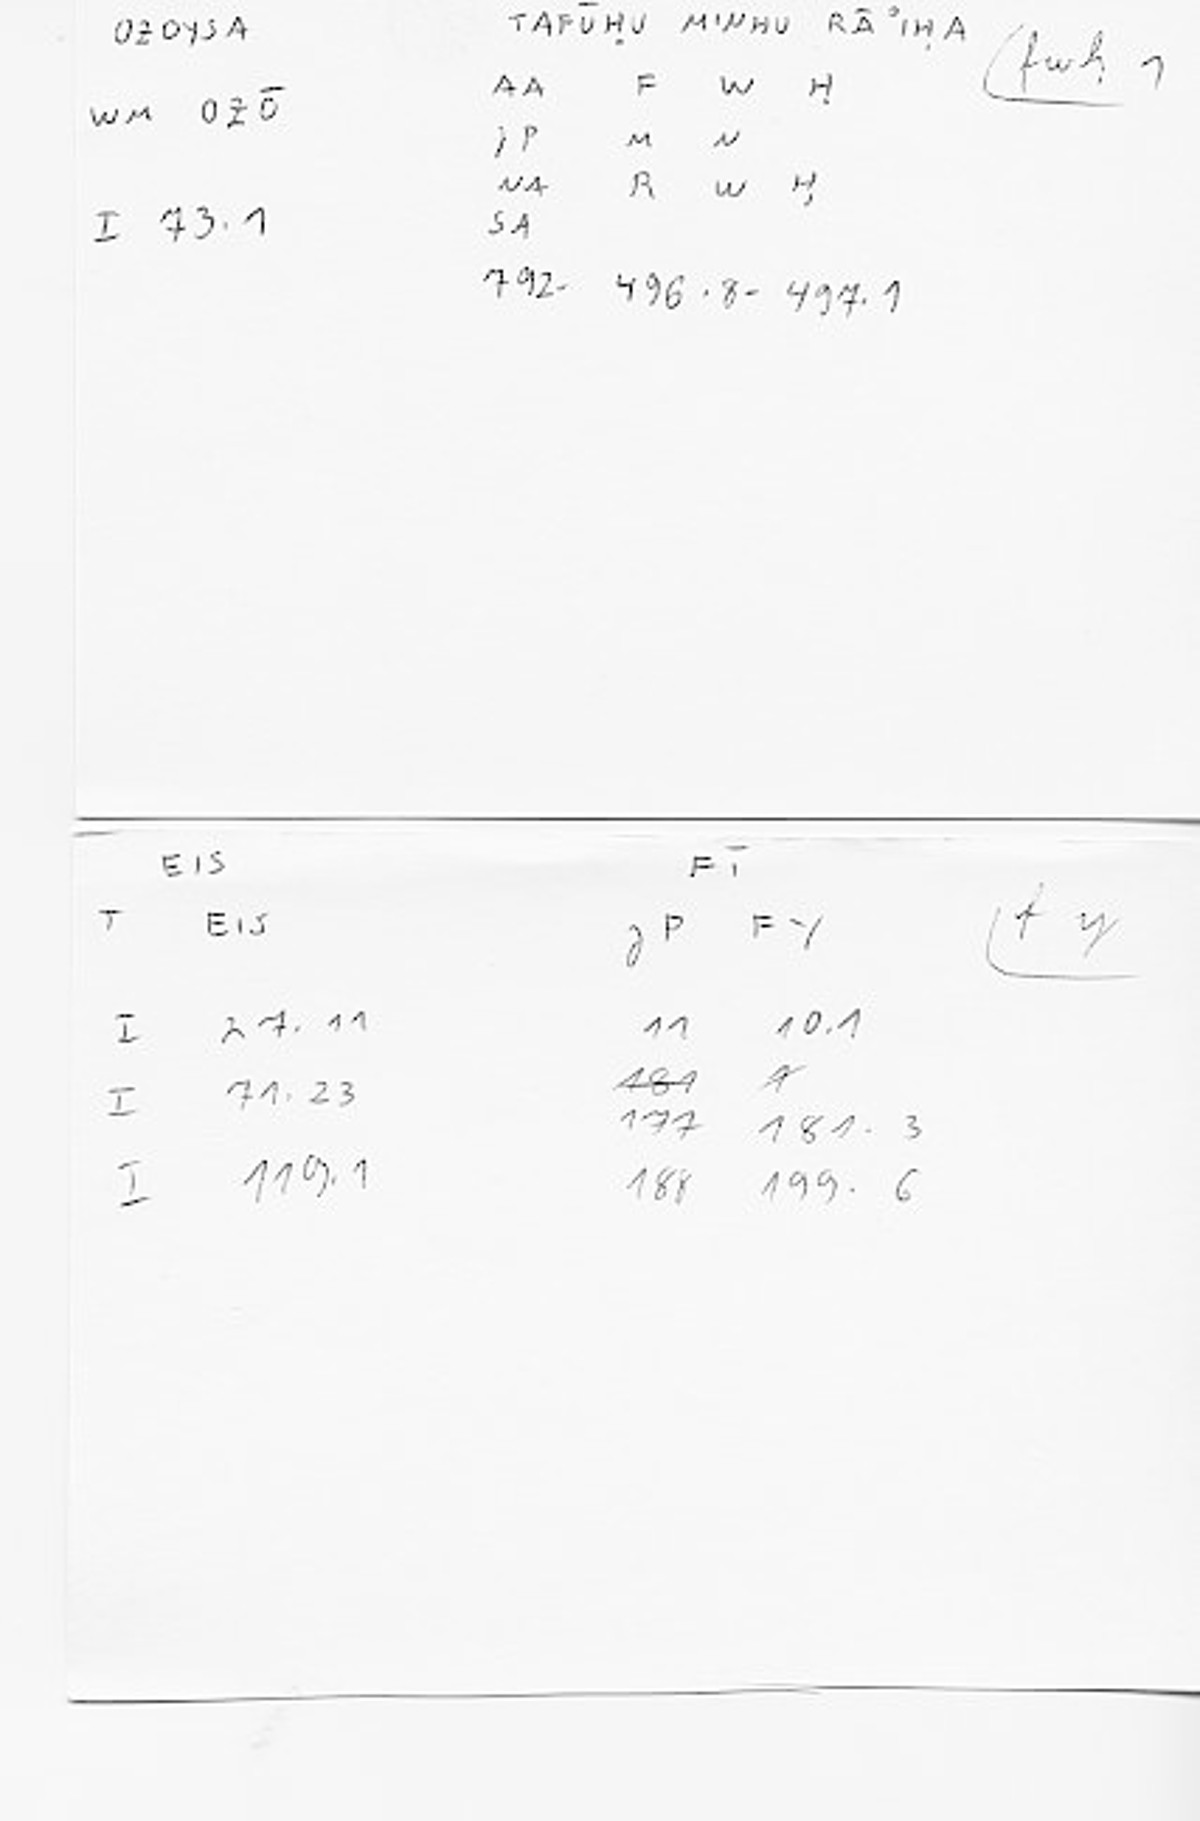 OZOYSA TAFŪḤU MINHU RĀʾIḤA fwḥ 1
AA F W Ḥ
WM OZŌ
JP M N
NA R W Ḥ
I 73.1
SA
792- 496.8- 497.1
EIS FĪ
T EIS JP FY f y
I 27.11 11 10.1
I 71.23 181 1
177 181. 3
I 119.1 188 199. 6